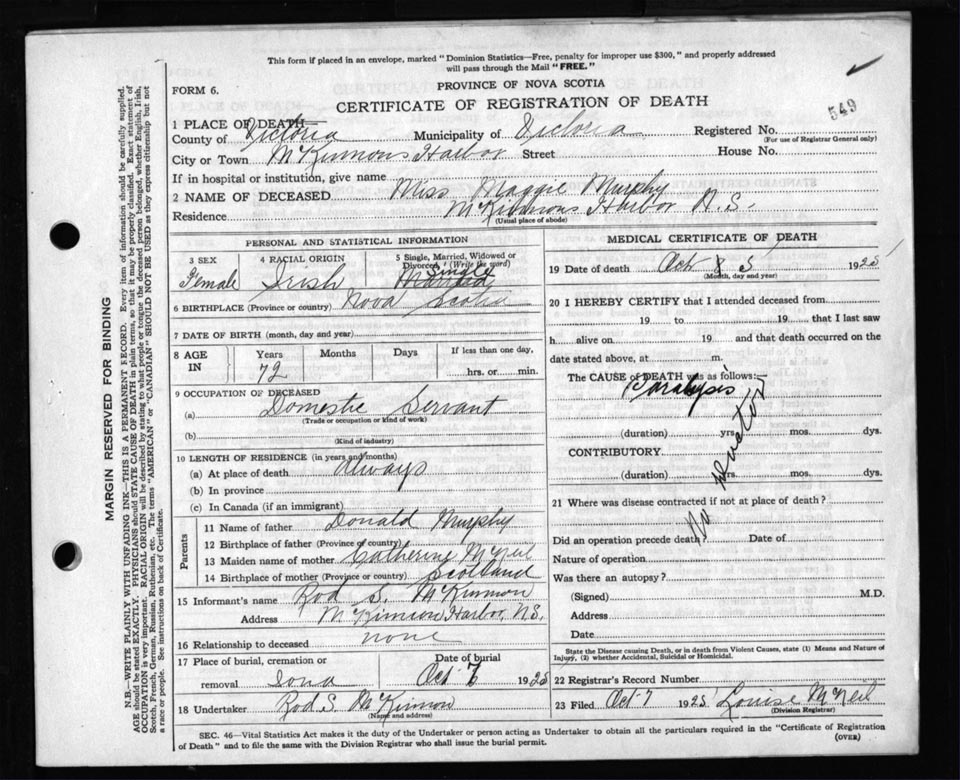 This form if placed in an envelope, marked "Dominion Statistics—Free, penalty for improper use $300," and properly addressed
will pass through the Mail "FREE."
PROVINCE OF NOVA SCOTIA
FORM 6.
CERTIFICATE OF REGISTRATION OF DEATH
549
1 PLACE OF DEATH—
County of Victoria Municipality of Victoria Registered No.
(For use of Registrar General only)
City or Town McKinnons Harbor Street House No.
If in hospital or institution, give name
2 NAME OF DECEASED Miss Maggie Murphy
Residence McKinnons Harbor N.S.
(Usual place of abode)
PERSONAL AND STATISTICAL INFORMATION
3 SEX 4 RACIAL ORIGIN 5 Single, Married, Widowed or
Divorced (Write the word)
Single
Female Irish Married
6 BIRTHPLACE (Province or country) Nova Scotia
7 DATE OF BIRTH (month, day and year)
8 AGE IN Years Months Days If less than one day,
72 hrs. or min.
9 OCCUPATION OF DECEASED
(a) Domestic Servant
(Trade or occupation or kind of work)
(b)
(Kind of industry)
10 LENGTH OF RESIDENCE (in years and months)
(a) At place of death always
(b) In province
(c) In Canada (if an immigrant)
Parents
11 Name of father Donald Murphy
12 Birthplace of father (Province or country)
13 Maiden name of mother Catherine McNeil
14 Birthplace of mother (Province or country) Scotland
15 Informant's name Rod S. McKinnon
Address McKinnon Harbor, N.S.
16 Relationship to deceased none
17 Place of burial, cremation or Date of burial
removal Iona Oct 7 1925
18 Undertaker Rod S. McKinnon
(Name and address)
MEDICAL CERTIFICATE OF DEATH
19 Date of death Oct 5 1925
(Month, day and year)
20 I HEREBY CERTIFY that I attended deceased from
19 to 19 that I last saw
h alive on 19 and that death occurred on the
date stated above, at m.
The CAUSE of DEATH was as follows:—
Paralysis
(duration) yrs. mos. dys.
CONTRIBUTORY
(duration) yrs. mos. dys.
No Doctor
21 Where was disease contracted if not at place of death?
Did an operation precede death? Date of
Nature of operation
Was there an autopsy?
(Signed) M.D.
Address
Date
State the Disease causing Death, or in death from Violent Causes, state (1) Means and Nature of
Injury, (2) whether Accidental, Suicidal or Homicidal.
22 Registrar's Record Number
23 Filed Oct 7 1925 Louise McNeil
(Division Registrar)
SEC. 46—Vital Statistics Act makes it the duty of the Undertaker or person acting as Undertaker to obtain all the particulars required in the "Certificate of Registration
of Death" and to file the same with the Division Registrar who shall issue the burial permit.
(OVER)
MARGIN RESERVED FOR BINDING
N.B.—WRITE PLAINLY WITH UNFADING INK—THIS IS A PERMANENT RECORD. Every item of information should be carefully supplied.
AGE should be stated EXACTLY. PHYSICIANS should STATE CAUSE OF DEATH in plain terms, so that it may be properly classified. Exact statement of
OCCUPATION is very important. RACIAL ORIGIN will be described by stating to what people or tongue the deceased person belonged, whether English, Irish,
Scotch, French, German, Russian, Ruthenian, etc. The terms "AMERICAN" or "CANADIAN" SHOULD NOT BE USED as they express citizenship but not
a race or people. See instructions on back of Certificate.